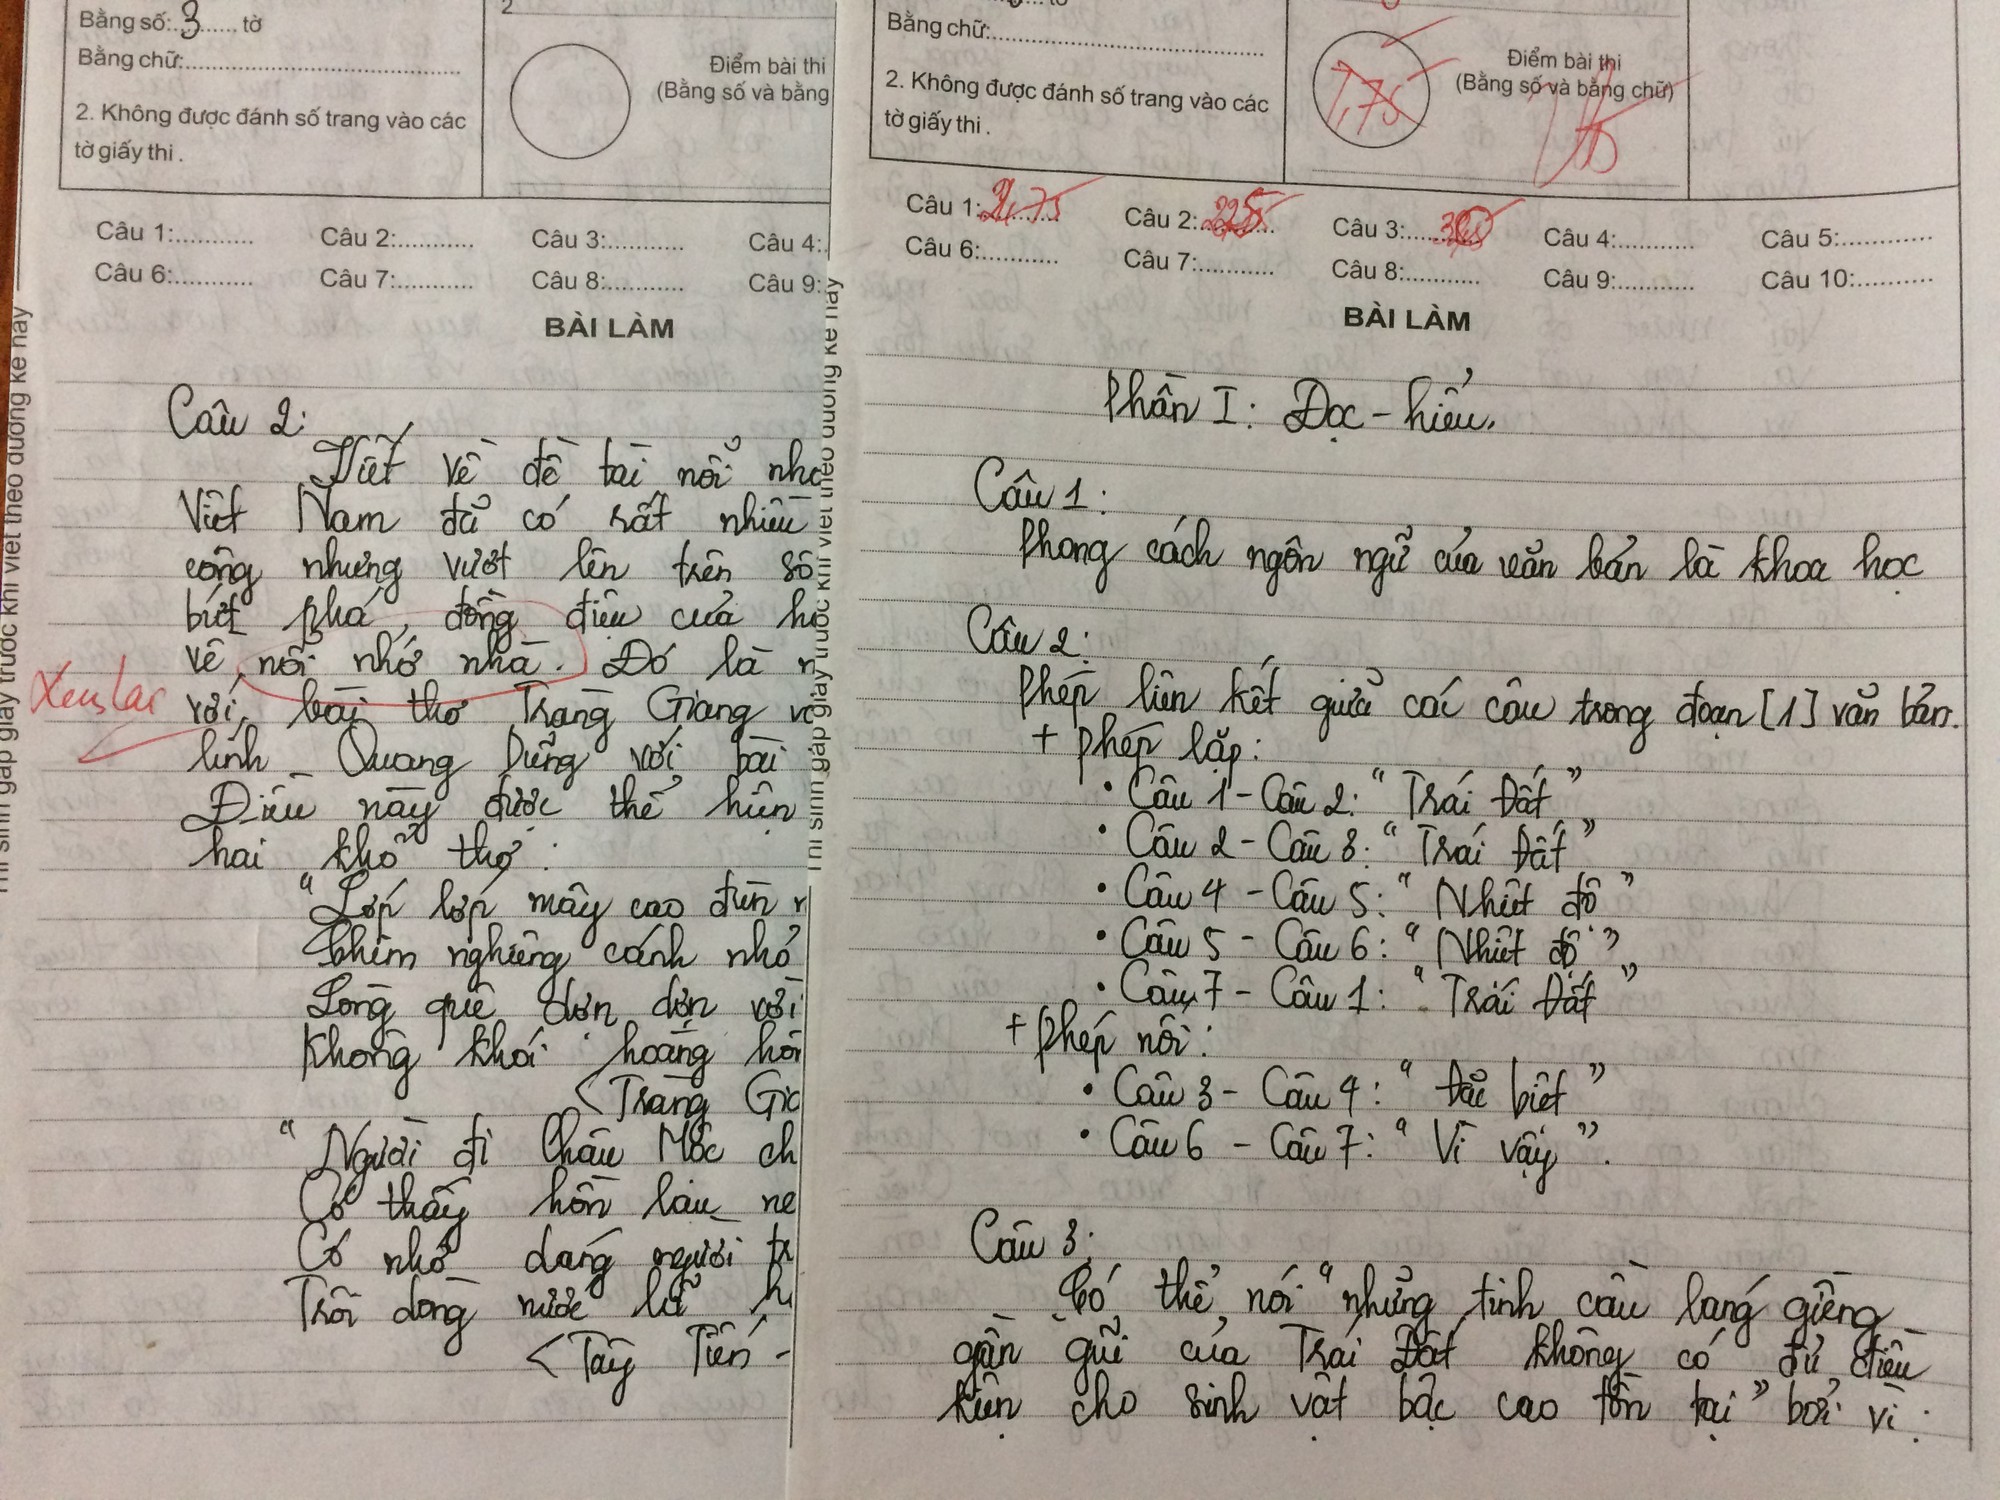 Bằng số:.3....... tờ
Bằng chữ:
2. Không được đánh số trang vào các
tờ giấy thi .
2
Điểm bài thi
(Bằng số và bằng
Câu 1:............ Câu 2:............ Câu 3:............ Câu 4:.
Câu 6:............ Câu 7:............ Câu 8:............ Câu 9:.
BÀI LÀM
Thí sinh gấp giấy trước khi viết theo đường kẻ này
Câu 2:
Viết về đề tài nỗi nhớ
Việt Nam đã có rất nhiều
công nhưng vượt lên trên số
biệt phá, đồng điệu của
về nỗi nhớ nhà. Đó là
Xem lại
với bài thơ Tràng Giang
lính Quang Dũng với bài
Điều này được thể hiện
hai khổ thơ:
"Lớp lớp mây cao đùn
Chim nghiêng cánh nhỏ
Lòng quê dợn dợn vời
Không khói hoàng hôn
<Tràng Gia
"Người đi Châu Mộc ch
Có thấy hồn lau ne
Có nhớ dáng người tr
Trôi dòng nước lũ h
<Tây Tiến -
tờ
Bằng chữ:
2. Không được đánh số trang vào các
tờ giấy thi .
7,75
Điểm bài thi
(Bằng số và bằng chữ)
Câu 1: Câu 2: Câu 3: Câu 4:............ Câu 5:............
Câu 6:............ Câu 7:............ Câu 8:............ Câu 9:............ Câu 10:............
BÀI LÀM
Thí sinh gấp giấy trước khi viết theo đường kẻ này
Phần I: Đọc - hiểu.
Câu 1:
Phong cách ngôn ngữ của văn bản là khoa học
Câu 2:
Phép liên kết giữa các câu trong đoạn [1] văn bản.
+ Phép lặp:
• Câu 1 - Câu 2: "Trái Đất"
• Câu 2 - Câu 3: "Trái Đất"
• Câu 4 - Câu 5: "Nhiệt độ"
• Câu 5 - Câu 6: "Nhiệt độ"
• Câu 7 - Câu 1: "Trái Đất"
+ Phép nối:
• Câu 3 - Câu 4: "Đặc biệt"
• Câu 6 - Câu 7: "Vì vậy".
Câu 3:
Có thể nói "những tinh cầu láng giềng
gần gũi của Trái Đất không có đủ điều
kiện cho sinh vật bậc cao tồn tại" bởi vì: